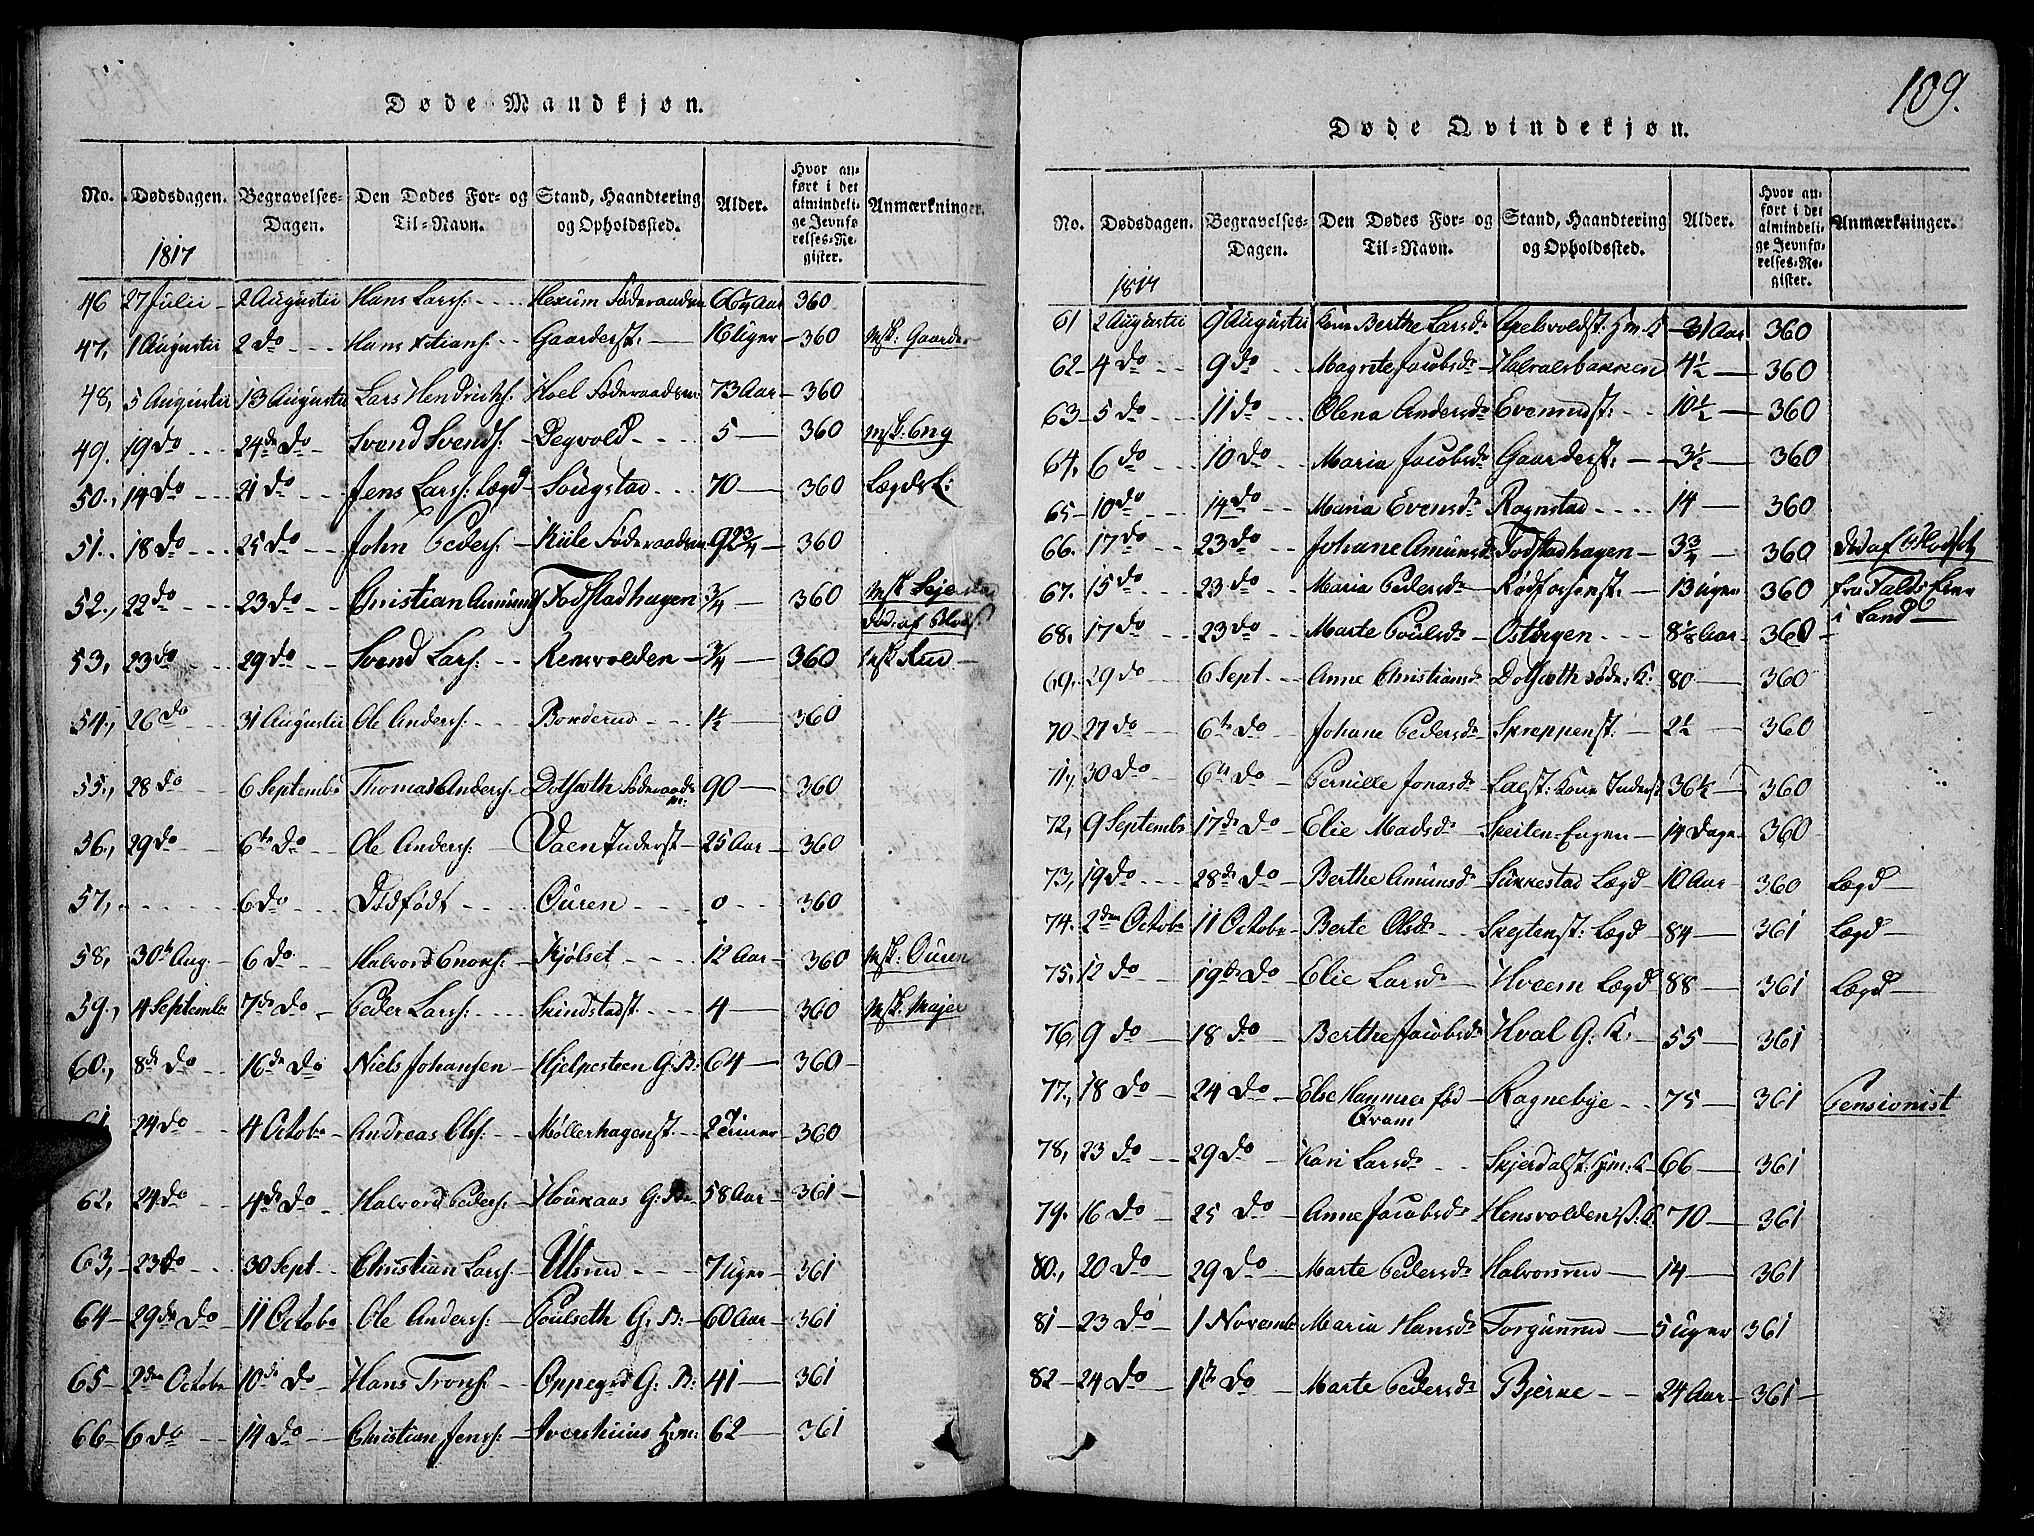 109.
Døde Mandkjøn.
No. Dødsdagen. Begravelses-Dagen. Den Dødes For- og Til-Navn. Stand, Haandtering og Opholdssted. Alder. Hvor anført i det almindelige Jevnførelses-Register. Anmærkninger.
1817
46 27 Julii 2 Augustii Hans Lars: Hexum Føderaadsm 66 Aar 360
47, 1 Augustii 2 Do Hans Xtians: Gaarderst: 16 Uger 360 Msk: Gaarder
48, 5 Augustii 13 Augustii Lars Hendrichs: Hoel Føderaadsm: 73 Aar 360
49. 19 Do 24de Do Svend Svends: Degvold 5 360 Msk: Eng
50., 14 Do 21 Do Jens Lars: Lægd Sougstad 70 360 Lægdsl:
51., 18 Do 25 Do John Peders: Kiile Føderaadsm 92 3/4 360
52., 22 Do 23 Do Christian Amunds Fodstadhagen 3/4 360 Msk
Død: af
53, 23 Do 29 Do Svend Lars: Rensvolden 3/4 360 Msk Rud
54., 26 Do 31 Augustii Ole Anders: Bonderud 1 1/2 360
55., 28 Do 6 Septembr Thomas Anders: Dotseth Føderaadsm: 90 360
56., 29 Do 6te Do Ole Anders: Vaen Inderst 25 Aar 360
57, 6 Do Dødfødt Ouren 0 360
58, 30te Aug. 6 Do Halvord Enors: Kjølset 12 Aar 360 Msk: Ouren
59., 4 Septembr 7de Do Peder Lars: Skindstadst. 4 360 Msk: Majer
60., 8de Do 16de Do Niels Johansen Hjelpesteen G: B: 64 360
61 24 Do 4 Octobr Andreas Ols: Møllerhagenst. 2 Timer 360
62, 24 Do 4de Do Halvord Peders: Houkaas G: Br 58 Aar 361
63, 23 Do 30 Sept Christian Lars: Ulsrud 7 Uger 361
64 29de Do 11 Octobr Ole Anders: Poulseth G: B: 60 Aar 361
65 2den Octobr 10de Do Hans Trons: Oppegrd G: B: 41 361
66 6 Do 14 Do Christian Jens: Sverstuius Hm: 62 361
Døde Qvindekjøn.
No. Dødsdagen. Begravelses-Dagen. Den Dødes For- og Til-Navn. Stand, Haandtering og Opholdssted. Alder. Hvor anført i det almindelige Jevnførelses-Register. Anmærkninger.
1817
61 2 Augustii 9 Augustii Kone Berthe Larsdr Axelsvoldst: Hm: K 31 Aar 360
62 4 Do 9 Do Magrete Jacobsdr Halvalsbakken 4 1/2 360
63 5 Do 11 Do Olena Andersdr Evenrudst: 10 1/2 360
64, 6 Do 10 Do Maria Jacobsdr Gaarderst: 3 1/2 360
65 10 Do 14 Do Maria Evensdr Rognstad 14 360
66. 17 Do 23 Do Johane Amunsdr Fodstadhagen 3 3/4 360 Død af Blodsot
67. 15 Do 23 Do Maria Pedersdr Rødfossenst: 13 Uger 360 fra Falds Eier
i Land
68. 17 Do 23 Do Marte Poulsdr Ostingen 8 1/8 Aar 360
69. 29 Do 6 Sept Anne Christiansdr Dotsæth Fødr: K: 80 360
70 27 Do 6te Do Johane Pedersdr Skreppenst: 2 1/2 360
71, 30 Do 6te Do Pernille Jonasdr Laest: Kone Inderst 36 1/2 360
72, 9 Septembr 17de Do Elie Madsdr Skeiten-Engen 14 Dage 360
73, 19 Do 28de Do Berthe Amunsdr Sukkestad Lægd 10 Aar 360 Lægd
74. 2den Octobr 11 Octobr Berte Olsdr Skejtenst: Lægd 84 361 Lægd
75, 12 Do 19de Do Elie Larsdr Hveem Lægd 88 361 Lægd
76, 9 Do 18 Do Berthe Jacobsdr Hval G: K: 55 361
77, 18 Do 24 Do Else Hannea fød Qvam Ragnebye 75 361 Pensionist
78, 23 Do 29 Do Kari Larsdr Skjerdalst: Hm: K 66 361
79. 16 Do 25 Do Anne Jacobsdr Hensvolden 70 361
80., 20 Do 29 Do Marte Pedersdr Halvorsrud 14 361
81 23 Do 1 Novembr Maria Hansdr Torgunrud 5 Uger 361
82 24 Do 1te Do Marte Pedersdr Bjerne 24 Aar 361